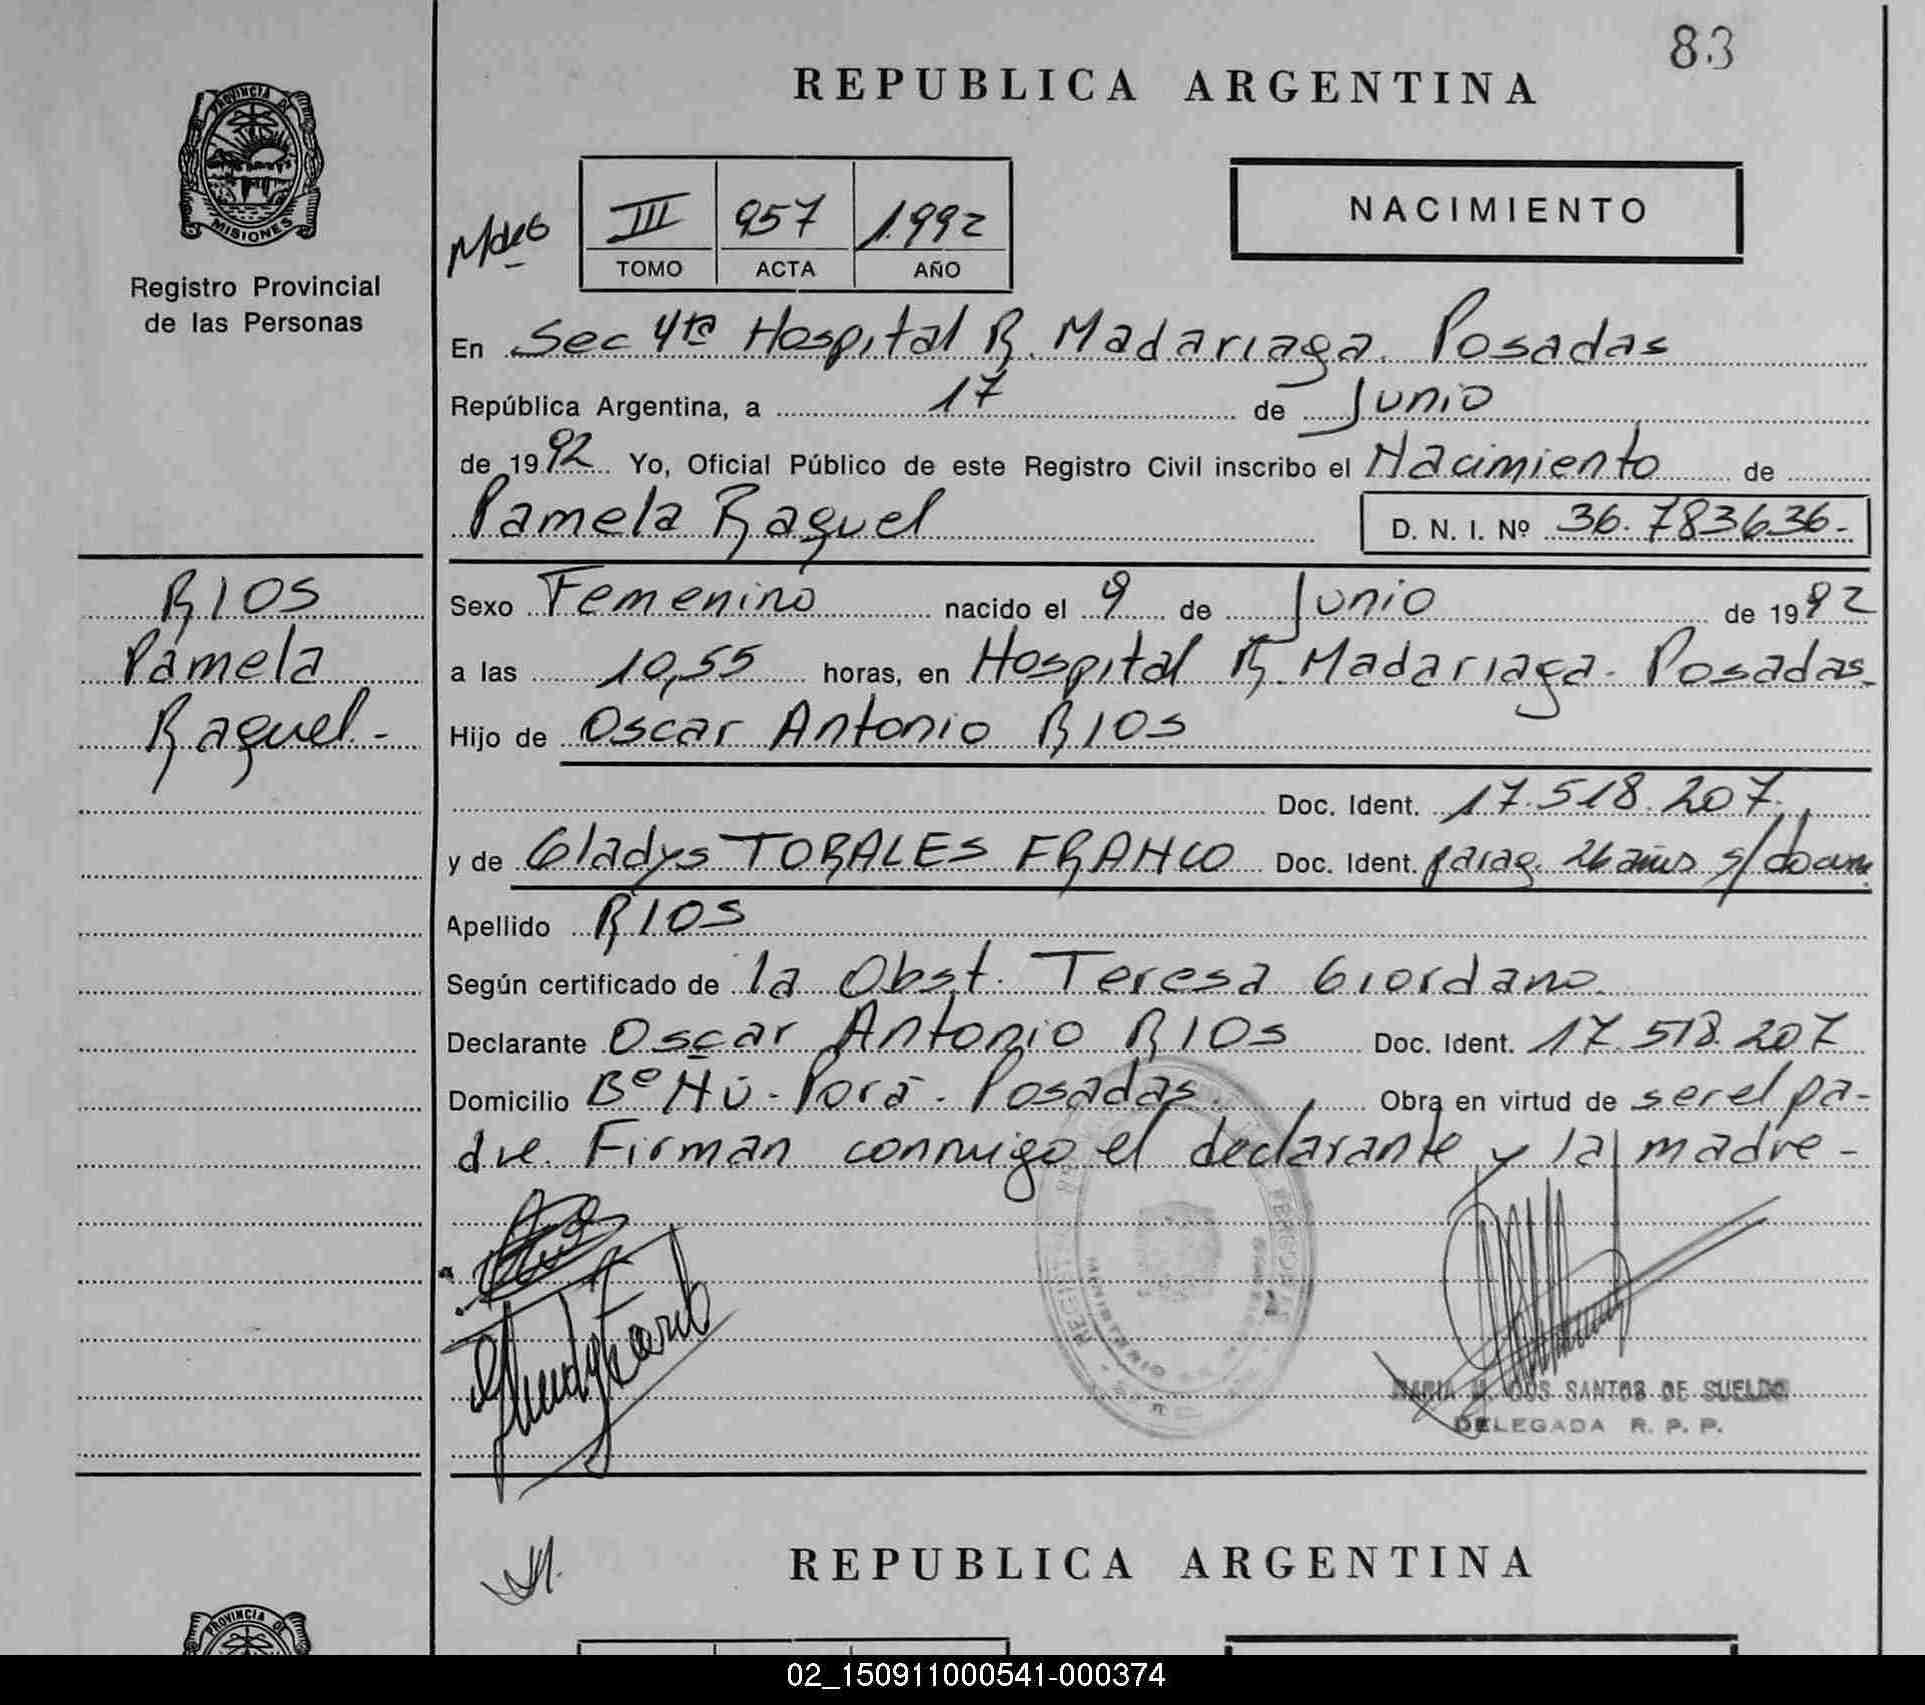 83
REPUBLICA ARGENTINA
PROVINCIA DE
MISIONES
Registro Provincial
de las Personas
III 957 1.992
TOMO ACTA AÑO
NACIMIENTO
En Sec 4ta Hospital R. Madariaga. Posadas
República Argentina, a 17 de Junio
de 1992 Yo, Oficial Público de este Registro Civil inscribo el Nacimiento de
Pamela Raquel D. N. I. Nº 36.783636.-
RIOS
Pamela
Raquel.-
Sexo Femenino nacido el 9 de Junio de 1992
a las 10,55 horas, en Hospital R. Madariaga. Posadas.
Hijo de Oscar Antonio RIOS
Doc. Ident. 17.518.207.
y de Gladys TORALES FRANCO Doc. Ident. parag. 26 años s/docum.
Apellido RIOS
Según certificado de la Obst. Teresa Giordano.
Declarante Oscar Antonio RIOS Doc. Ident. 17.518.207
Domicilio Bº Ñú-Porá. Posadas. Obra en virtud de ser el pa-
dre. Firman conmigo el declarante y la madre-
MARIA DOS SANTOS DE SUELDO
DELEGADA R. P. P.
REPUBLICA ARGENTINA
PROVINCIA DE
02_150911000541-000374